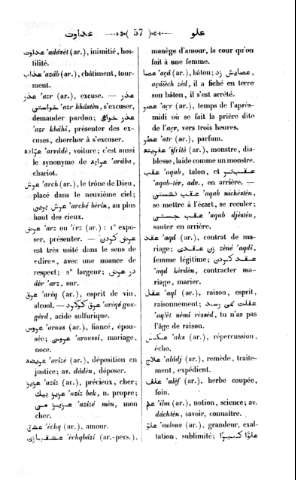 عداوت
57
علو
عداوت 'adâvèt (ar.), inimitié, hostilité.
عذاب 'azâb (ar.), châtiment, tourment.
عذر 'uzr (ar.), excuse. —
'uzr khâstin, s'excuser,
demander pardon;
'uzr khâhî, présenter des excuses, chercher à s'excuser.
عراده 'arrâdè, voiture; c'est aussi
le synonyme de عرابه 'arâba,
chariot.
عرش 'arch (ar.), le trône de Dieu,
placé dans le neuvième ciel;
'arché bérîn, au plus
haut des cieux.
عرض 'arz ou 'irz (ar.) : 1° exposer, présenter. —
est très usité dans le sens de
«dire», avec une nuance de
respect; 2° largeur;
dèr 'arz, sur.
عرق 'arèq (ar.), esprit de vin,
alcool. —
acide sulfurique.
عروس 'arous (ar.), fiancé, épousée; عروسى 'aroussi, mariage,
noce.
'arîzè (ar.), déposition en
justice; av. dâdèn, déposer.
عزيز 'azîz (ar.), précieux, cher;
عزيز بيك 'azîz bek, n. propre;
عزيز من 'azîzé mèn, mon
cher.
عشق 'échq (ar.), amour.
عشقبازى 'échqbâzî (ar.-pers.),
manège d'amour, la cour qu'on
fait à une femme.
عصا 'açâ (ar.), bâton;
il a fiché en terre
son bâton, il s'est arrêté.
عصر 'açr (ar.), temps de l'après-
midi où se fait la prière dite
de l'açr, vers trois heures.
عطر 'atr (ar.), parfum.
'ifrîtè (ar.), monstre, diablesse, laide comme un monstre.
عقب 'aqab, talon, et
'aqab-tèr, adv., en arrière. —
'aqab nichèstèn,
se mettre à l'écart, se reculer;
عقب جستن 'aqab djèstèn,
sauter en arrière.
عقد 'aqd (ar.), contrat de mariage;
femme légitime; عقد كردن
'aqd kèrdèn, contracter mariage, marier.
عقل 'aql (ar.), raison, esprit,
raisonnement;
tu n'as pas
l'âge de raison.
عكس 'aks (ar.), répercussion,
écho.
علاج 'alâdj (ar.), remède, traitement, expédient.
علف 'alèf (ar.), herbe coupée,
foin.
علم 'ilm (ar.), notion, science; av.
dâchtèn, savoir, connaître.
(ar.), grandeur, exaltation, sublimité;